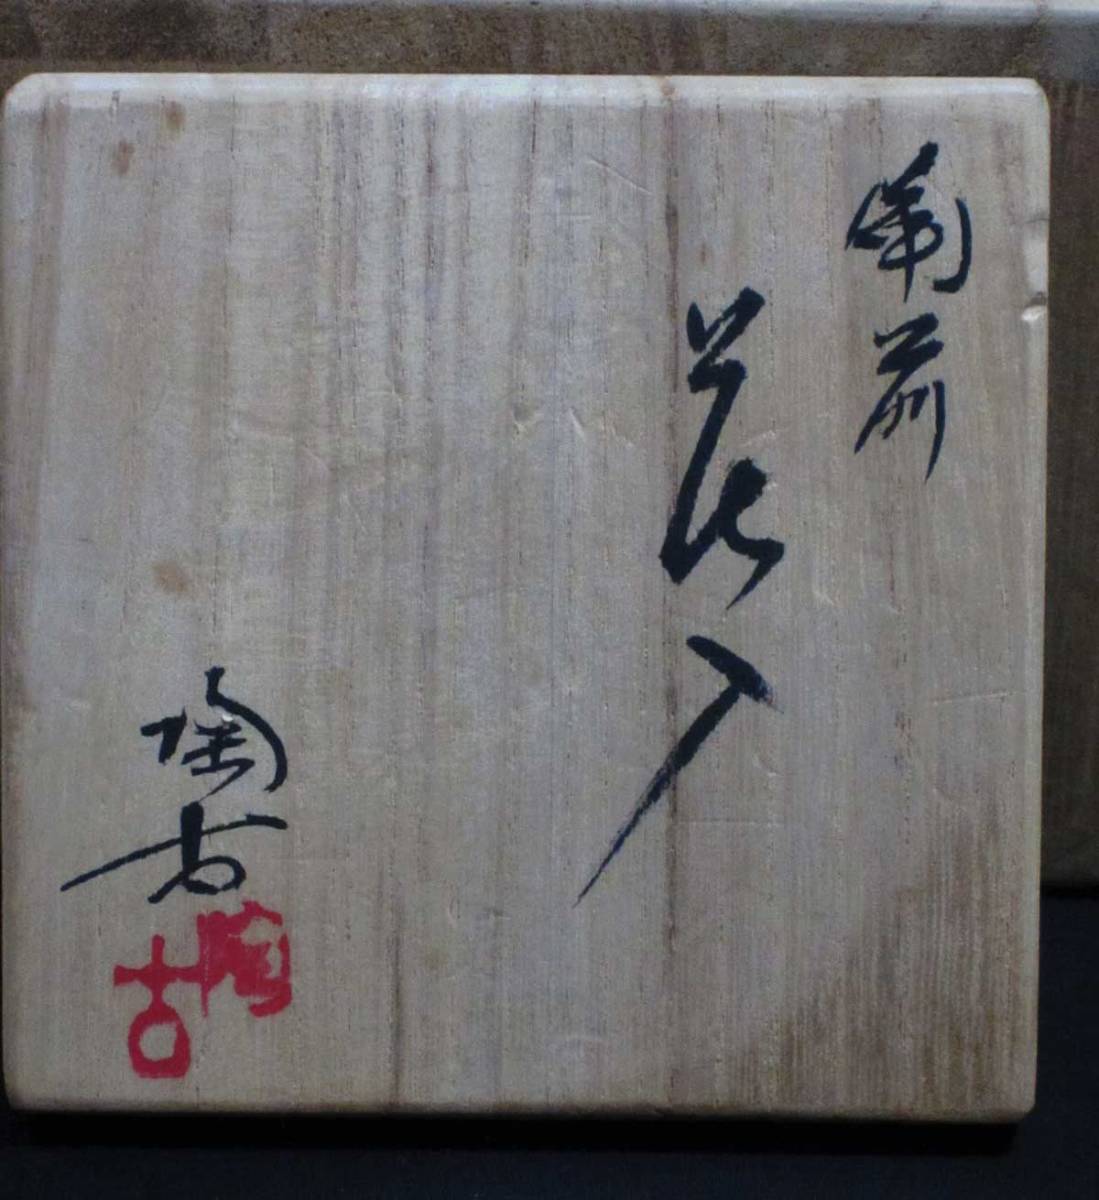 備前
花入
陶古
陶古